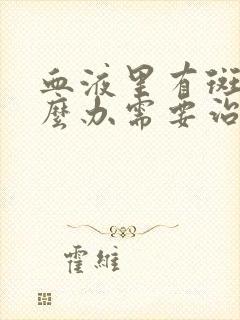 血液里有斑
麼办需要治
霍維